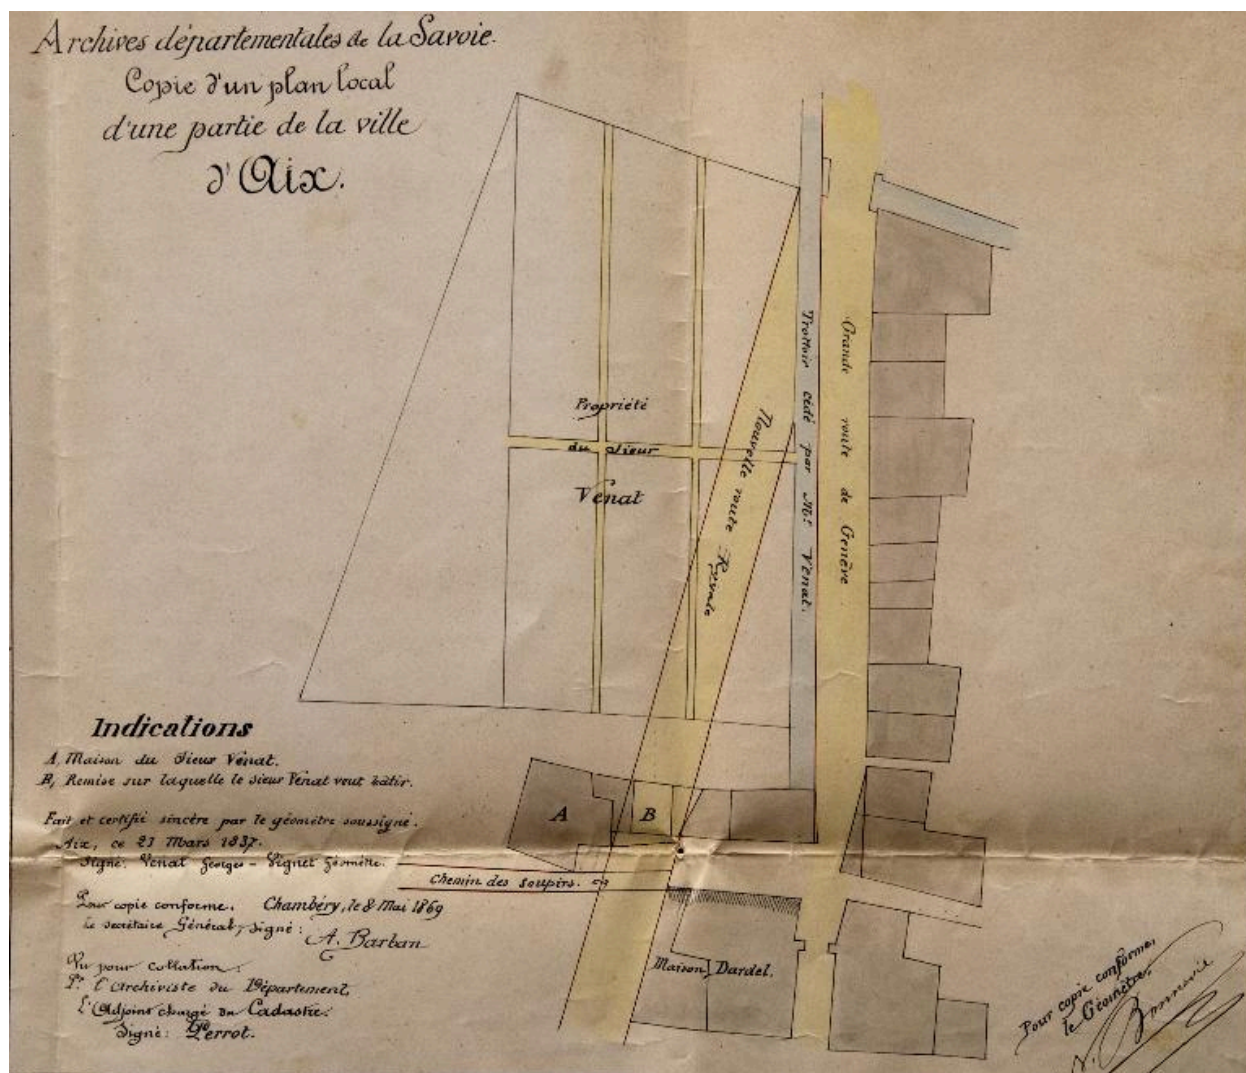 Archives départementales de la Savoie.
Copie d'un plan local
d'une partie de la ville
d'Aix.
Propriété
du Sieur
Vénat
Nouvelle route Royale
Trottoir cédé par Mr. Vénat.
Grande route de Genève
Indications
A, Maison du Sieur Vénat.
B, Remise sur laquelle le sieur Vénat veut bâtir.
A
B
Fait et certifié sincère par le géomètre soussigné.
Aix, ce 21 Mars 1837.
Signé: Vénat Georges – Vignet Géomètre.
Chemin des soupirs.
Pour copie conforme. Chambéry, le 8 Mai 1869
Le secrétaire Général, signé:
A. Barban
Vu pour collation:
Pr. l'Archiviste du Département,
L'Adjoint chargé du Cadastre:
Signé: Perrot.
Maison Dardel.
Pour copie conforme.
le Géomètre.
Bonnevie